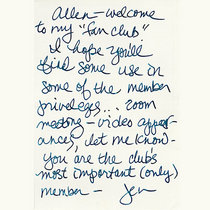 Allen – welcome
to my "fan club"
I hope you'll
find some use in
some of the member
privileges... zoom
meeting – video appear-
ances, let me know –
you are the club's
most important (only)
member – Jen